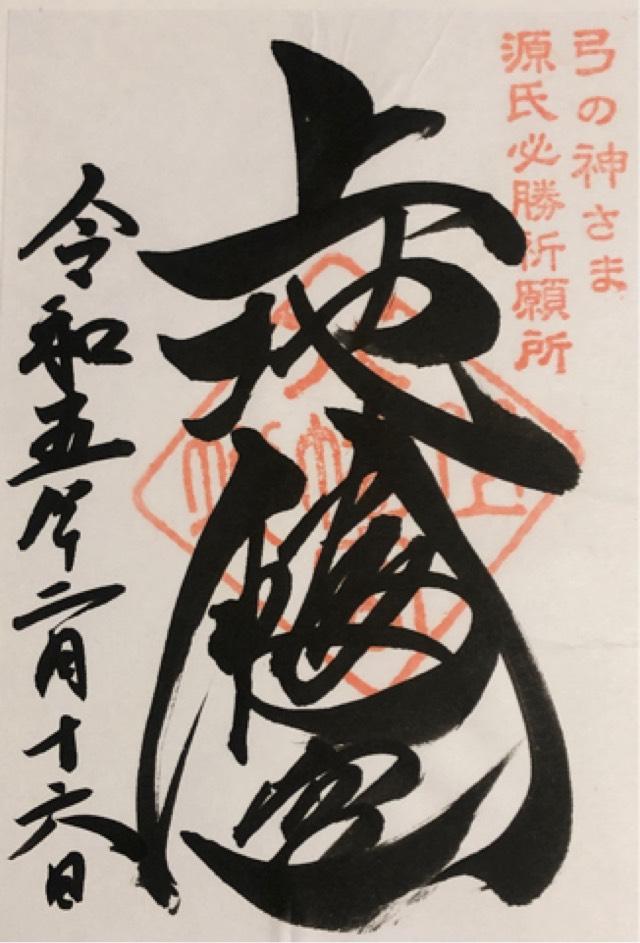 弓の神さま
源氏必勝祈願所
上地八幡宮
令和五年二月十六日